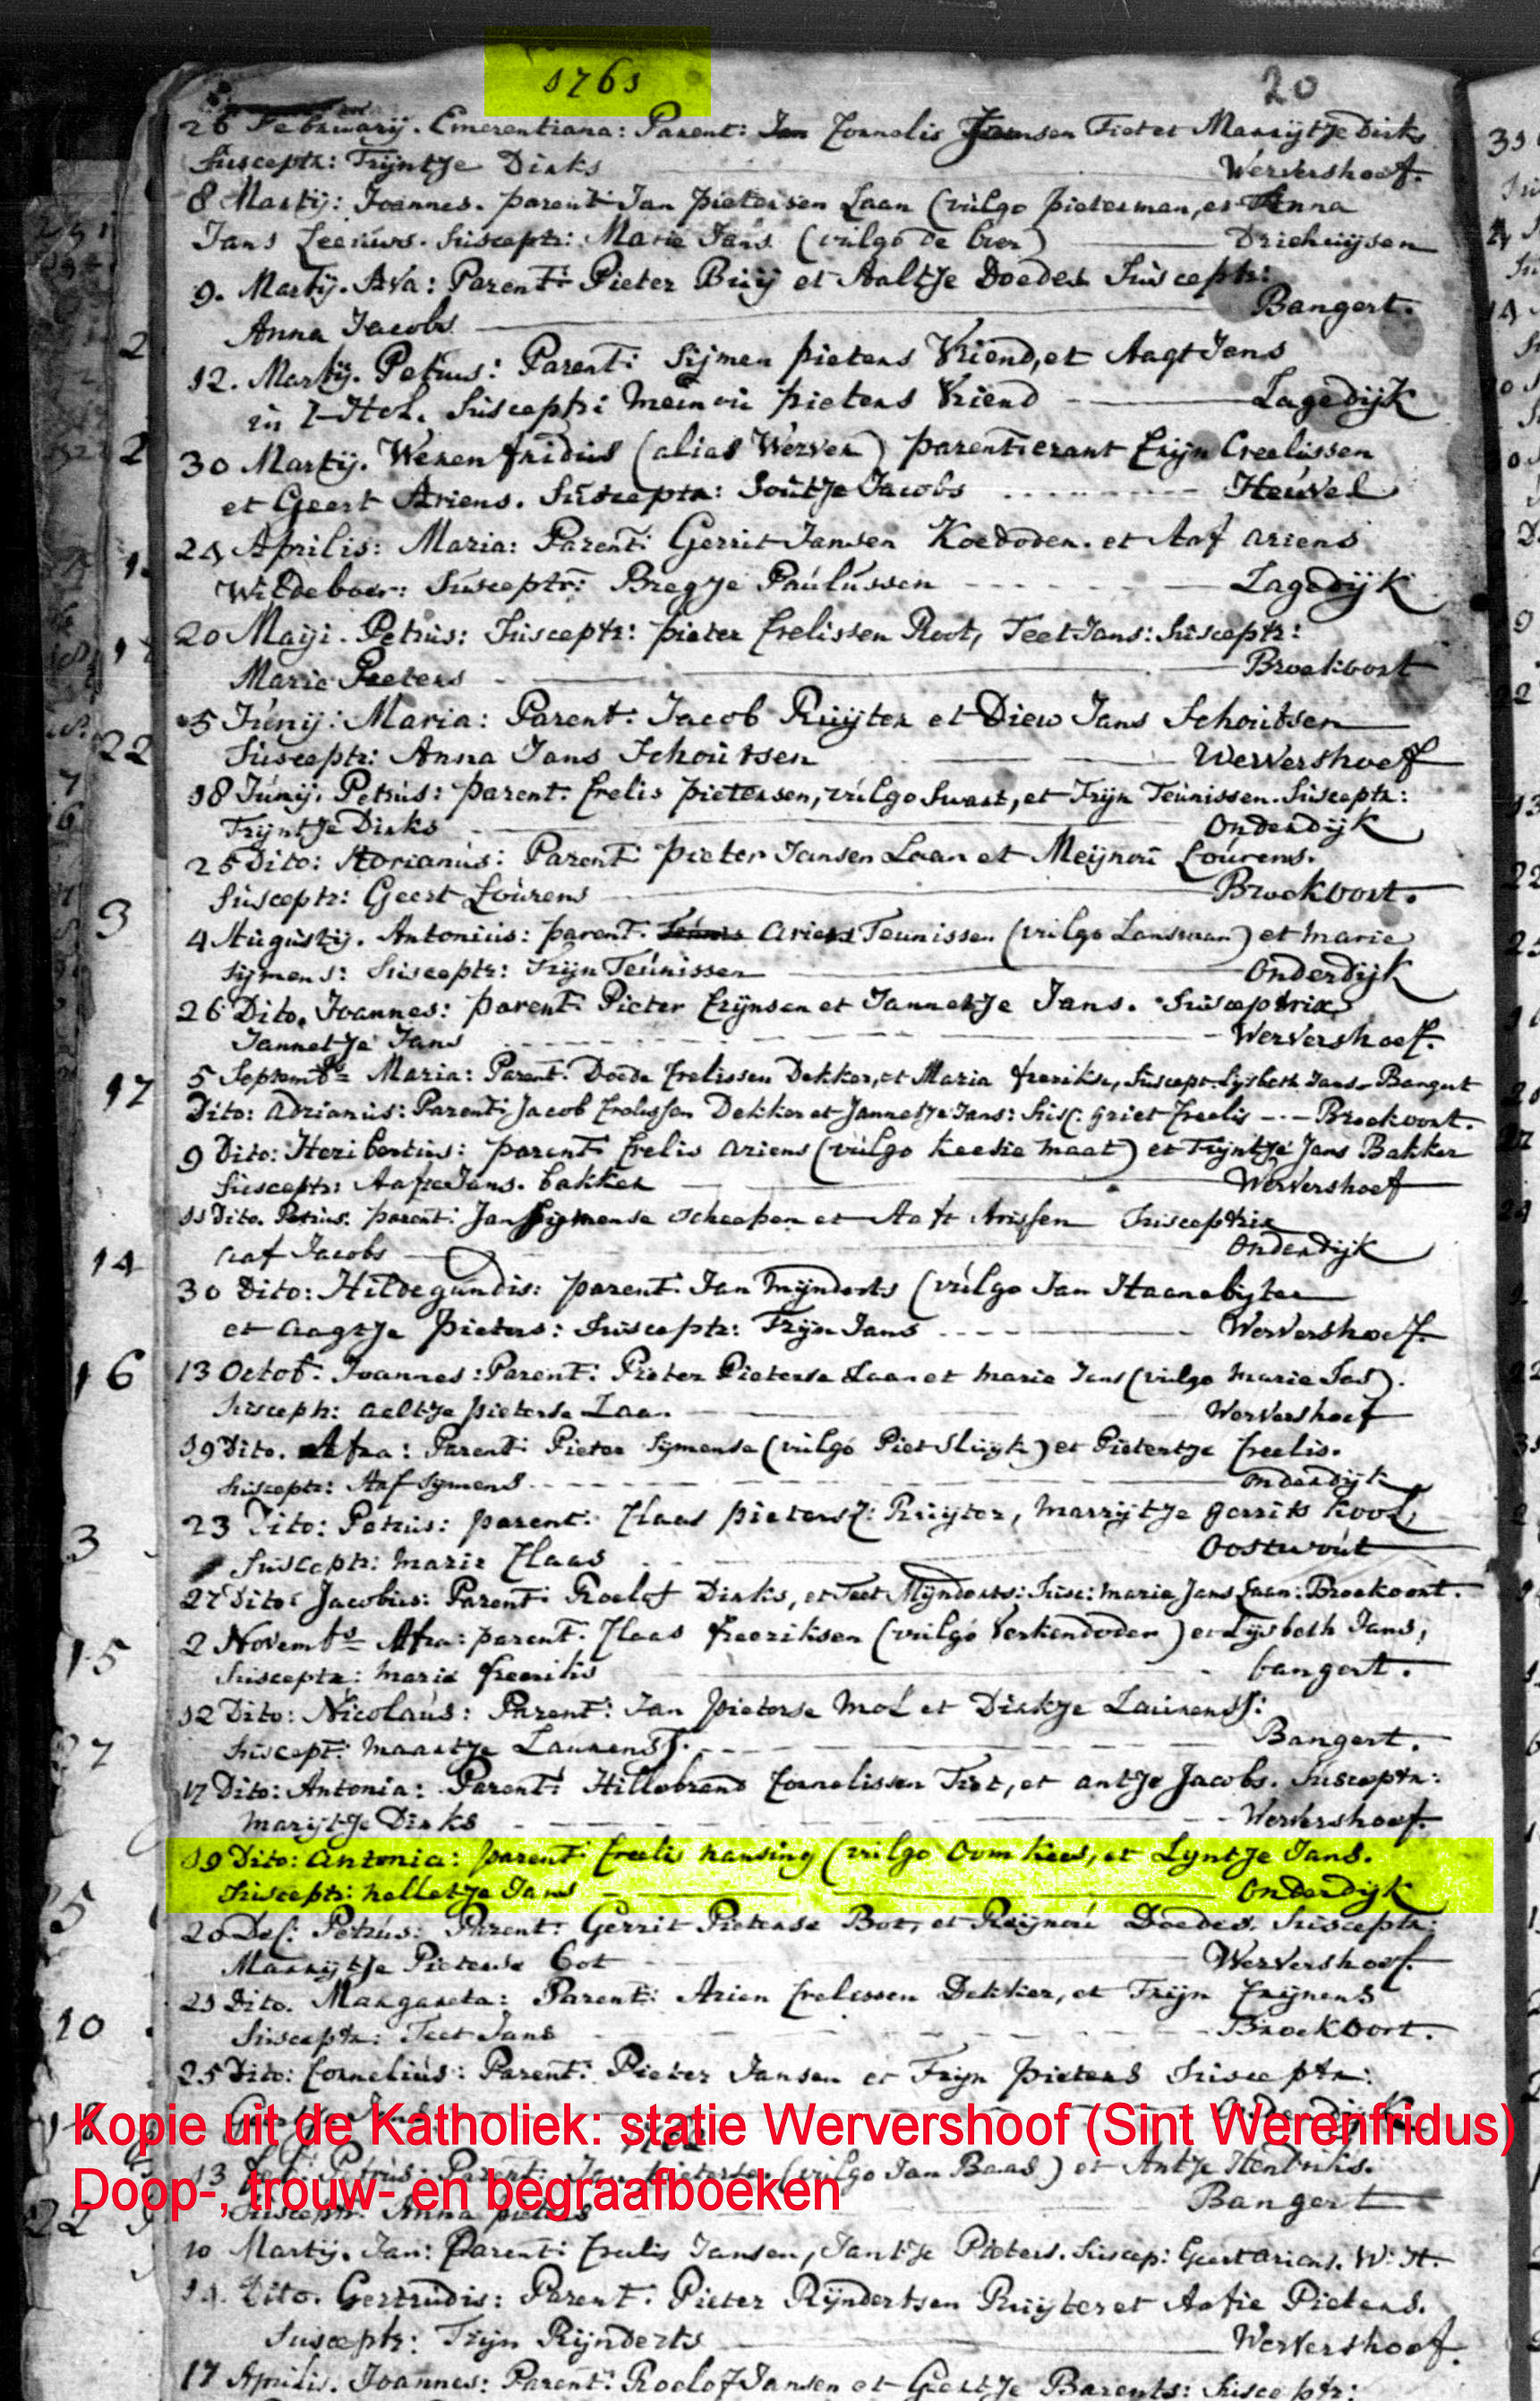 1761
20
26 February. Emerentiana: Parent: Cornelis Jansen Tiet et Marrijtje Dirks
Susceptr: Trijntje Dirks Wervershoef.
8 Martij: Joannes. parent: Jan Pietersen Laan (vulgo Pieterman, et Anna
Jans Leeuws. Susceptr: Marie Jans (vulgo de boer) Driehuijsen
9. Martij. Ava: Parent: Pieter Buij et Aaltje Doedes Susceptr:
Anna Jacobs Bangert.
2
12. Martij. Petrus: Parent: Sijmen pieters Vriend, et Aagt Jans
Susceptr: Meinou pieters Vriend Lagedijk
2
30 Martij. Werenfridus (alias Werver) parent erant Crijn Creelissen
et Geert Ariens. Susceptr: Soutje Jacobs Heuvel
24 Aprilis: Maria: Parent: Gerrit Jansen Koedoder. et Aaf ariens
1.
Wildeboer: Susceptr: Bregje Paulussen Lagedijk
20 Maji. Petrus: Susceptr: pieter Crelissen Root, Teet Jans: Susceptr:
Marie Peeters Broekoort
5 Junij: Maria: Parent: Jacob Ruijter et Diew Jans Schoutsen
22
Susceptr: Anna Jans Schoutsen Wervershoef
18 Junij. Petrus: parent: Crelis pietersen, vulgo Swart, et Trijn Teunissen. Susceptr:
Trijntje Dirks Onderdijk
25 Dito: Adrianus: Parent: pieter Jansen Laan et Meijnou Lourens.
Susceptr: Geert Lourens Broekoort.
3
4 Augustij. Antonius: parent: Ariens Teunissen (vulgo Lansman) et marie
Sijmens: Susceptr: Trijn Teunissen Onderdijk
26 Dito. Joannes: parent: Pieter Crijnsen et Jannetje Jans. Susceptrix
Jannetje Jans Wervershoef.
17
5 Septembr Maria: Parent: Doede Crelissen Dekker, et Maria freriks, Suscept: Lijsbeth Jans Bangert
Dito: adrianus: Parent: Jacob Crelissen Dekker et Jannetje Jans: Susc: griet Creelis Broekoort.
9 Dito: Heribertus: parent: Crelis ariens (vulgo keesie maat) et Trijntje Jans Bakker
Susceptr: Aafje Jans. bakker Wervershoef
11 Dito. Petrus: parent: Jan Sijmense scheepen et Aaft Arissen Susceptrix
14
aaf Jacobs Onderdijk
30 Dito: Hildegundis: parent: Jan Mijnderts (vulgo Jan Haanebijter
et aagtje pieters: Susceptr: Trijn Jans Wervershoef.
16
13 Octob: Joannes: Parent: Pieter Pieterse Laan et marie Jans (vulgo marie Jas).
Susceptr: aeltje pieterse Laa. Wervershoef
19 Dito. Afra: Parent: Pieter Sijmense (vulgo Piet Sluijk) et Pietertje Creelis.
Susceptr: Aaf Sijmens Onderdijk
23 Dito: Petrus: parent: Claas pietersz: Ruijter, marrijtje gerrits kool,
3
Susceptr: marie Claas Oostwout
27 Dito: Jacobus: Parent: Roelof Dirks, et Teet Mijnderts: Susc: maria Jans Laan: Broekoort.
2 Novembr Afra: parent: Claas freeriksen (vulgo Verkendoder) et Lijsbeth Jans,
15
Susceptr: maria freeriks bangert.
12 Dito: Nicolaus: Parent: Jan pieterse Mol et Dirkje Laurens:
7
Suscept: maartje Laurens Bangert.
17 Dito: Antonia: Parent: Hillebrand Cornelissen Tiet, et antje Jacobs. Susceptr:
Marijtje Dirks Wervershoef.
19 Dito: antonia: parent: Creelis hansing (vulgo Oom kees, et Lijntje Jans.
Susceptr: nelletje Jans Onderdijk
5
20 Dec: Petrus: Parent: Gerrit Pieterse Bot, et Reijnou Doedes. Susceptr:
Marrijtje Pieterse Bot Wervershoef.
21 Dito. Margareta: Parent: Arien Crelissen Dekker, et Trijn Crijnens
10
Susceptr: Teet Jans Broekoort.
25 Dito: Cornelius: Parent: Pieter Jansen et Trijn pieters Susceptr:
Onderdijk
Kopie uit de Katholiek: statie Wervershoof (Sint Werenfridus)
13 Petrus: Parent: Jan pieterse (vulgo Jan Baas) et Antje Hendriks.
Doop-, trouw- en begraafboeken
22
Susceptr: Anna pieters Bangert
10 Martij. Jan: Parent: Creelis Jansen, Jantje Pieters. Suscep: Geert arians. W: H.
14. Dito. Gertrudis: Parent: Pieter Rijndertsen Ruijter et Aafie Pieters.
Susceptr: Trijn Rijnderts Wervershoef.
17 Aprilis. Joannes: Parent: Roelof Jansen et Geertje Barents: Susceptr: